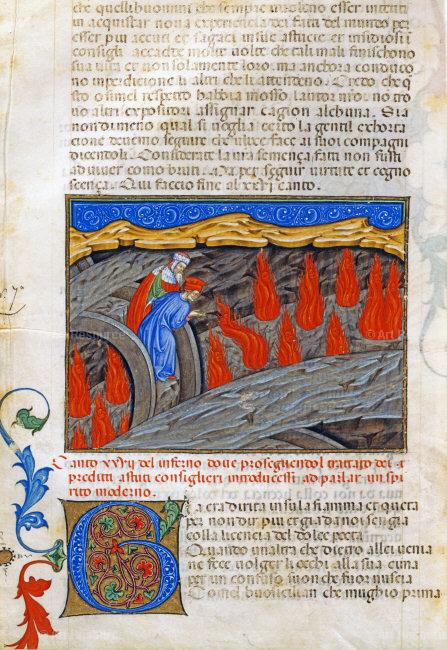 che quelli huomini che sempre vogliono esser intenti
in acquistar nova experientia dei fatti del mundo per
esser piu accuti et sagaci in sule astucie et insidiosi
consigli accade molte uolte che tali mali finischono
sua uita et non solamente loro ma anchora conduco
no in perdicione li altri che li attendeno. Credo che q̄
sto o simel respetto habbia mosso lautor
uo altri expositori assignar cagion alchuna. Sia
non di meno qual si uoglia certo la gentil exhorta
cione deuemo seguire che ulixe face ai suoi compagni
dicendoli. Considerate la ura semença fati non fusti
ad uiuer como bruti. Ma per seguir uirtute et cogno
scença. Qui faccio fine al xxvi canto.
Canto xxvii del inferno doue proseguendo l tractato dei
prediti astuti consiglieri introducessi ad parlar un spi
rito moderno.
Gia era dirita in su la fiamma et queta
per non dir piu et gia da noi sen gia
colla licencia del dolce poeta
Quando unaltra che dietro allei uenia
ne fece uolger li occhi alla sua cima
per un confuso suon che fuor nuscia
Come l bue cicilian che mughio prima